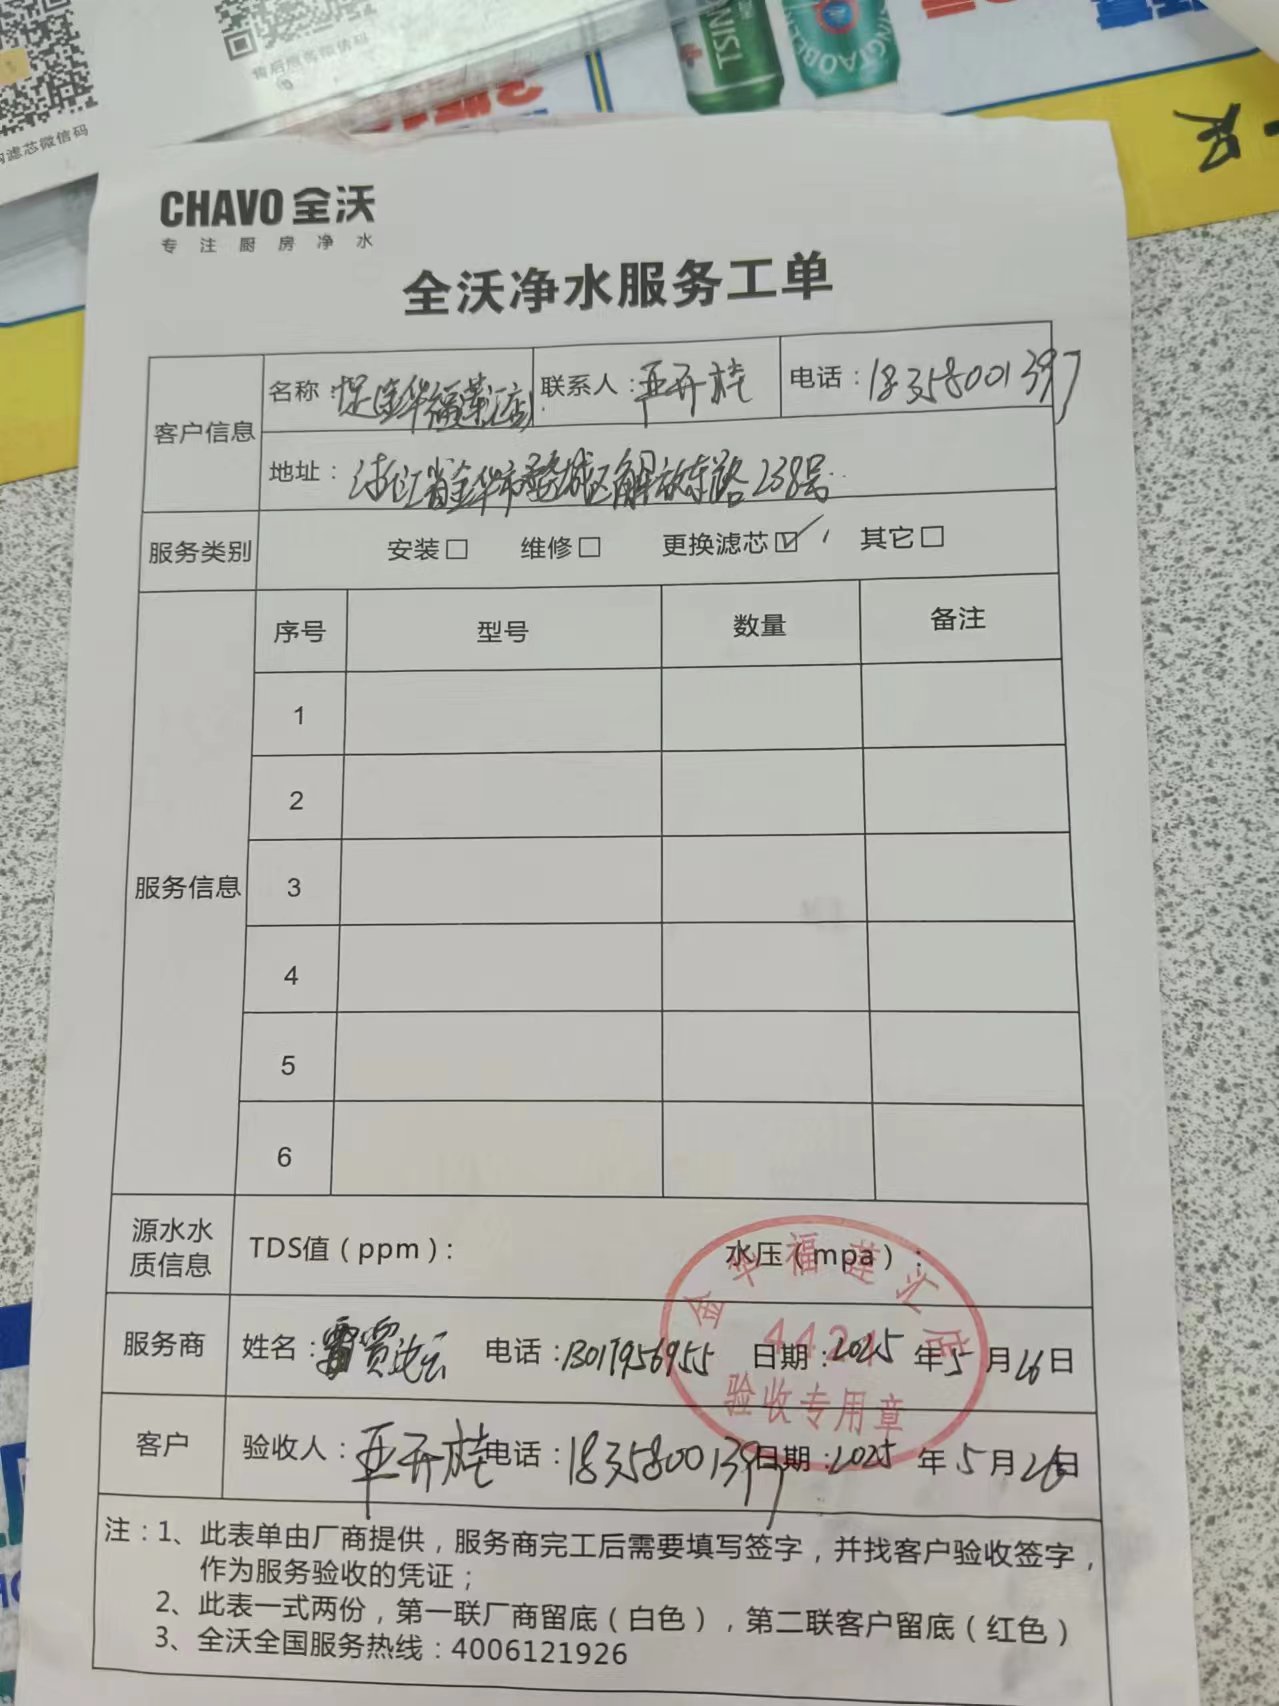 售后服务微信码
滤芯微信码
TSINGTAO BEER
CHAVO 全沃
专注厨房净水
全沃净水服务工单
客户信息
名称： 金华福莲汇店
联系人：
电话：18358001397
地址：浙江省金华市婺城区解放东路238号
服务类别 安装□ 维修□ 更换滤芯☑ 其它□
服务信息
序号 型号 数量 备注
1
2
3
4
5
6
源水水质信息
TDS值（ppm）： 水压（mpa）：
服务商 姓名： 电话：13017956955 日期：2025年5月26日
客户 验收人： 电话：18358001397 日期：2025年5月26日
金华福莲汇店
442
验收专用章
注：1、此表单由厂商提供，服务商完工后需要填写签字，并找客户验收签字，
作为服务验收的凭证；
2、此表一式两份，第一联厂商留底（白色），第二联客户留底（红色）
3、全沃全国服务热线：4006121926